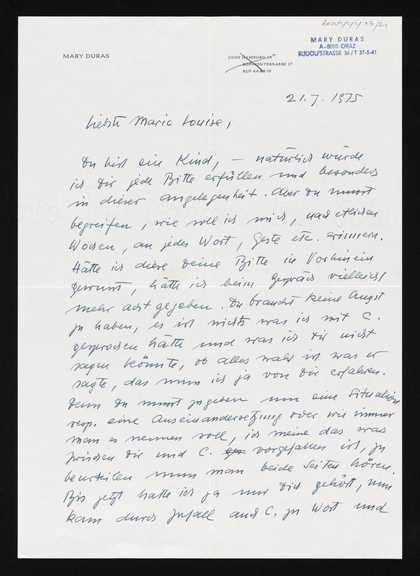 MARY DURAS
MARY DURAS
A-8010 GRAZ
RUDOLFSTRASSE 36/T 37-5-41
21.7.1975
Liebste Marie Louise,
Du bist ein Kind, – natürlich würde
ich Dir jede Bitte erfüllen und besonders
in dieser Angelegenheit. Aber Du musst
begreifen, wie soll ich mich, nach etlichen
Wochen, an jedes Wort, Geste etc. erinnern.
Hätte ich diese Deine Bitte im Vorhinein
gewusst, hätte ich beim Gespräch vielleicht
mehr acht gegeben. Du brauchst keine Angst
zu haben, es ist nichts was ich mit C.
gesprochen hätte und was ich Dir nicht
sagen könnte, ob alles wahr ist was er
sagte, das muss ich ja von Dir erfahren.
Denn Du musst zugeben um eine Situation
resp. eine Auseinandersetzung oder wie immer
man es nennen soll, ich meine das was
zwischen Dir und C. vorgefallen ist, zu
beurteilen muss man beide Seiten hören.
Bis jetzt hatte ich ja nur Dich gehört, nun
kam durch Zufall auch C. zu Wort und